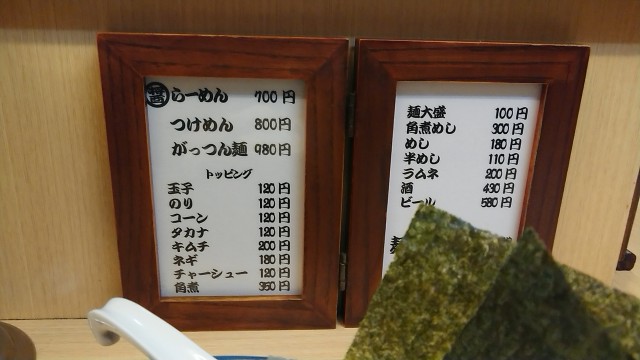 醤らーめん 700円
つけめん 800円
がっつん麺 980円
トッピング
玉子 120円
のり 120円
コーン 120円
タカナ 120円
キムチ 200円
ネギ 180円
チャーシュー 120円
角煮 350円
麺大盛 100円
角煮めし 300円
めし 180円
半めし 110円
ラムネ 200円
酒 430円
ビール 580円